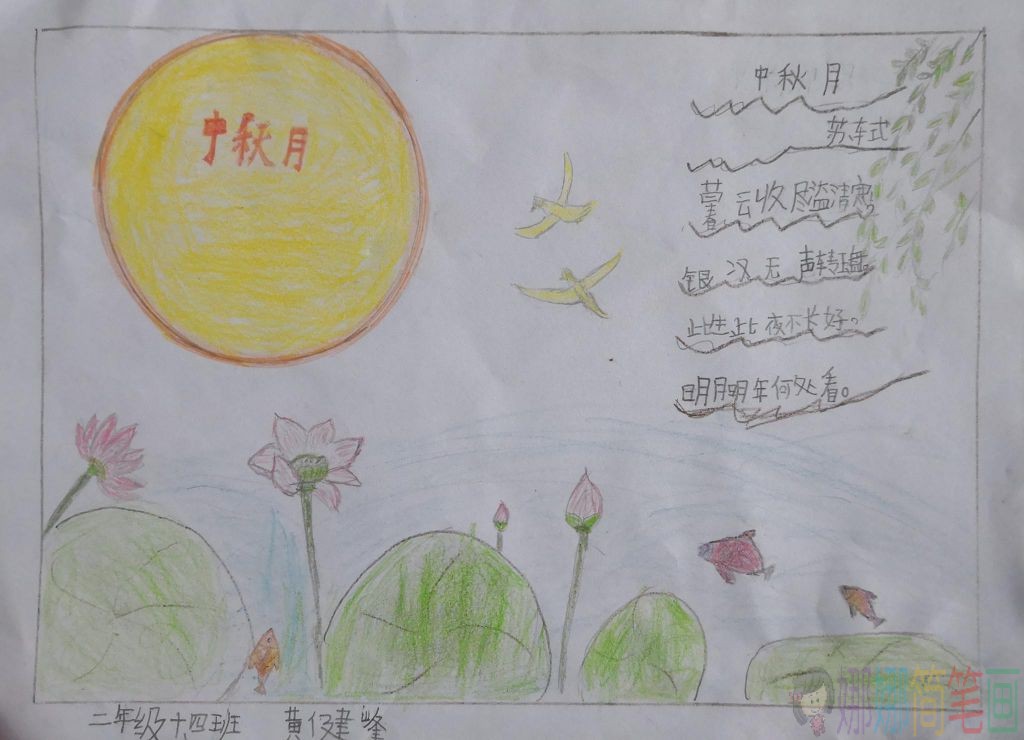 中秋月
中秋月
苏轼
暮云收尽溢清寒。
银汉无声转玉盘
此生此夜不长好。
明月明年何处看。
二年级十四班 黄仪建峰
娜娜简笔画